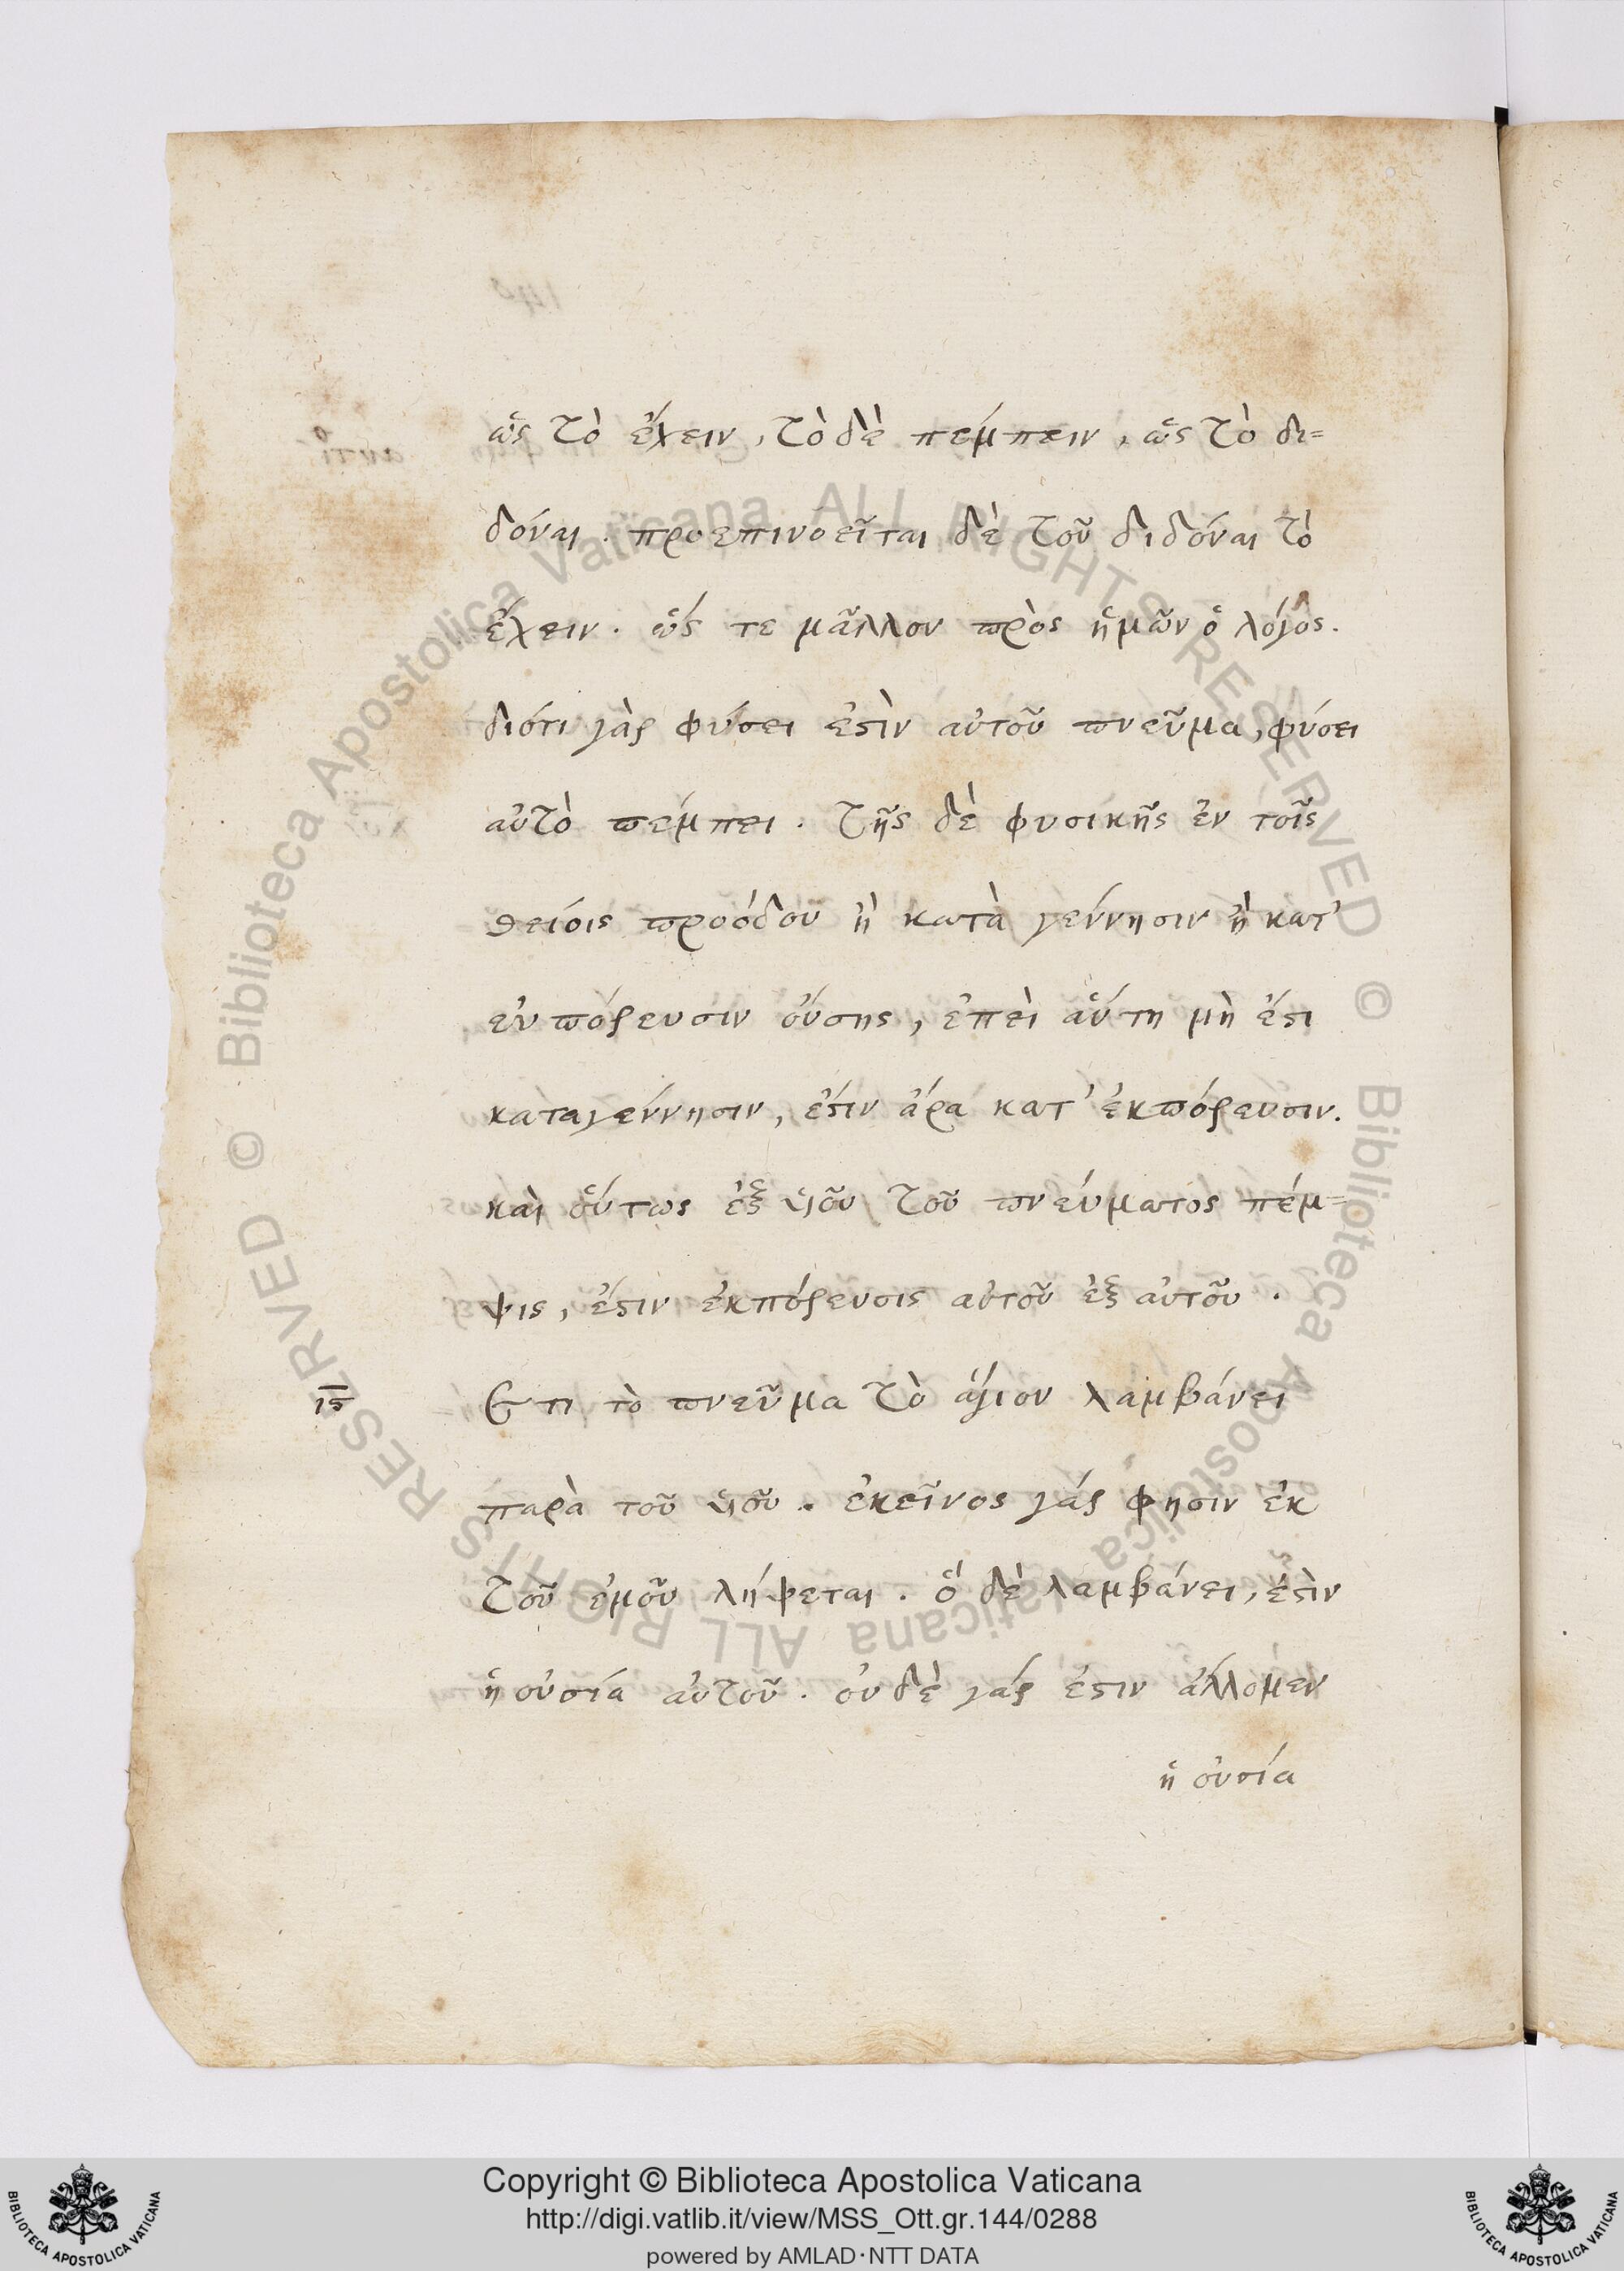 ὡς τὸ ἔχειν, τὸ δὲ πέμπειν, ὡς τὸ δι=
δόναι. προεπινοεῖται δὲ τοῦ διδόναι τὸ
ἔχειν. ὥς τε μᾶλλον πρὸς ἡμῶν ὁ λόγος.
διότι γὰρ φύσει ἐστὶν αὐτοῦ πνεῦμα, φύσει
αὐτὸ πέμπει. τῆς δὲ φυσικῆς ἐν τοῖς
θείοις προόδου ἢ κατὰ γέννησιν ἢ κατ'
ἐκπόρευσιν οὔσης, ἐπεὶ αὕτη μὴ ἔστι
καταγέννησιν, ἔστιν ἄρα κατ' ἐκπόρευσιν.
καὶ οὕτως ἐξ ὑιοῦ τοῦ πνεύματος πέμ=
ψις, ἔστιν ἐκπόρευσις αὐτοῦ ἐξ αὐτοῦ.
ις Ετι τὸ πνεῦμα τὸ ἅγιον λαμβάνει
παρὰ τοῦ ὑιοῦ. ἐκεῖνος γάρ φησιν ἐκ
τοῦ ἐμοῦ λήψεται. ὅ δὲ λαμβάνει, ἐστὶν
ἡ οὐσία αὐτοῦ. οὐδὲ γάρ ἐστιν ἄλλο μὲν
ἡ οὐσία
Copyright © Biblioteca Apostolica Vaticana
http://digi.vatlib.it/view/MSS_Ott.gr.144/0288
powered by AMLAD·NTT DATA
BIBLIOTECA APOSTOLICA VATICANA
BIBLIOTECA APOSTOLICA VATICANA
© Biblioteca Apostolica Vaticana ALL RIGHTS RESERVED © Biblioteca Apostolica Vaticana ALL RIGHTS RESERVED